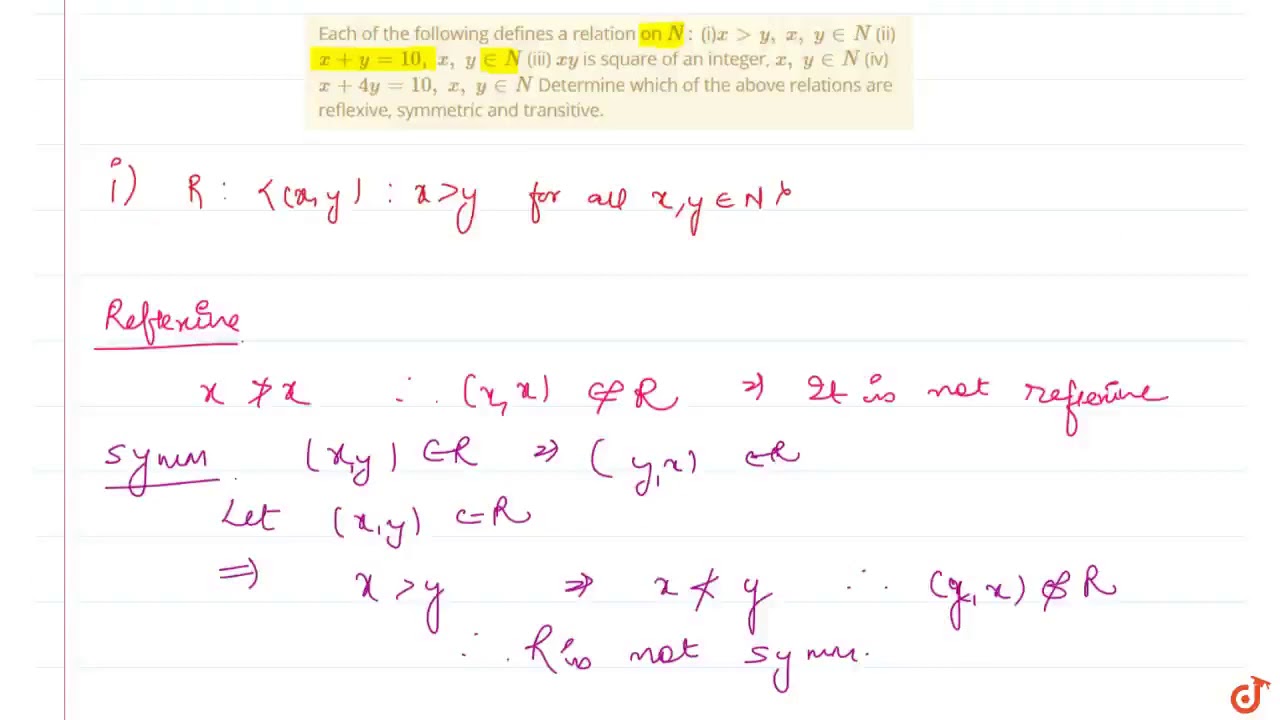 Each of the following defines a relation on N: (i)x > y, x, y ∈ N (ii)
x + y = 10, x, y ∈ N (iii) xy is square of an integer, x, y ∈ N (iv)
x + 4y = 10, x, y ∈ N Determine which of the above relations are
reflexive, symmetric and transitive.
i) R : {(x,y) : x>y for all x,y ∈ N}
Reflexive
x ≯ x ∴ (x,x) ∉ R ⇒ It is not reflexive
Symm (x,y) ∈ R ⇒ (y,x) ∈ R
Let (x,y) ∈ R
⇒ x > y ⇒ x ≮ y ∴ (y,x) ∉ R
∴ R is not symm.